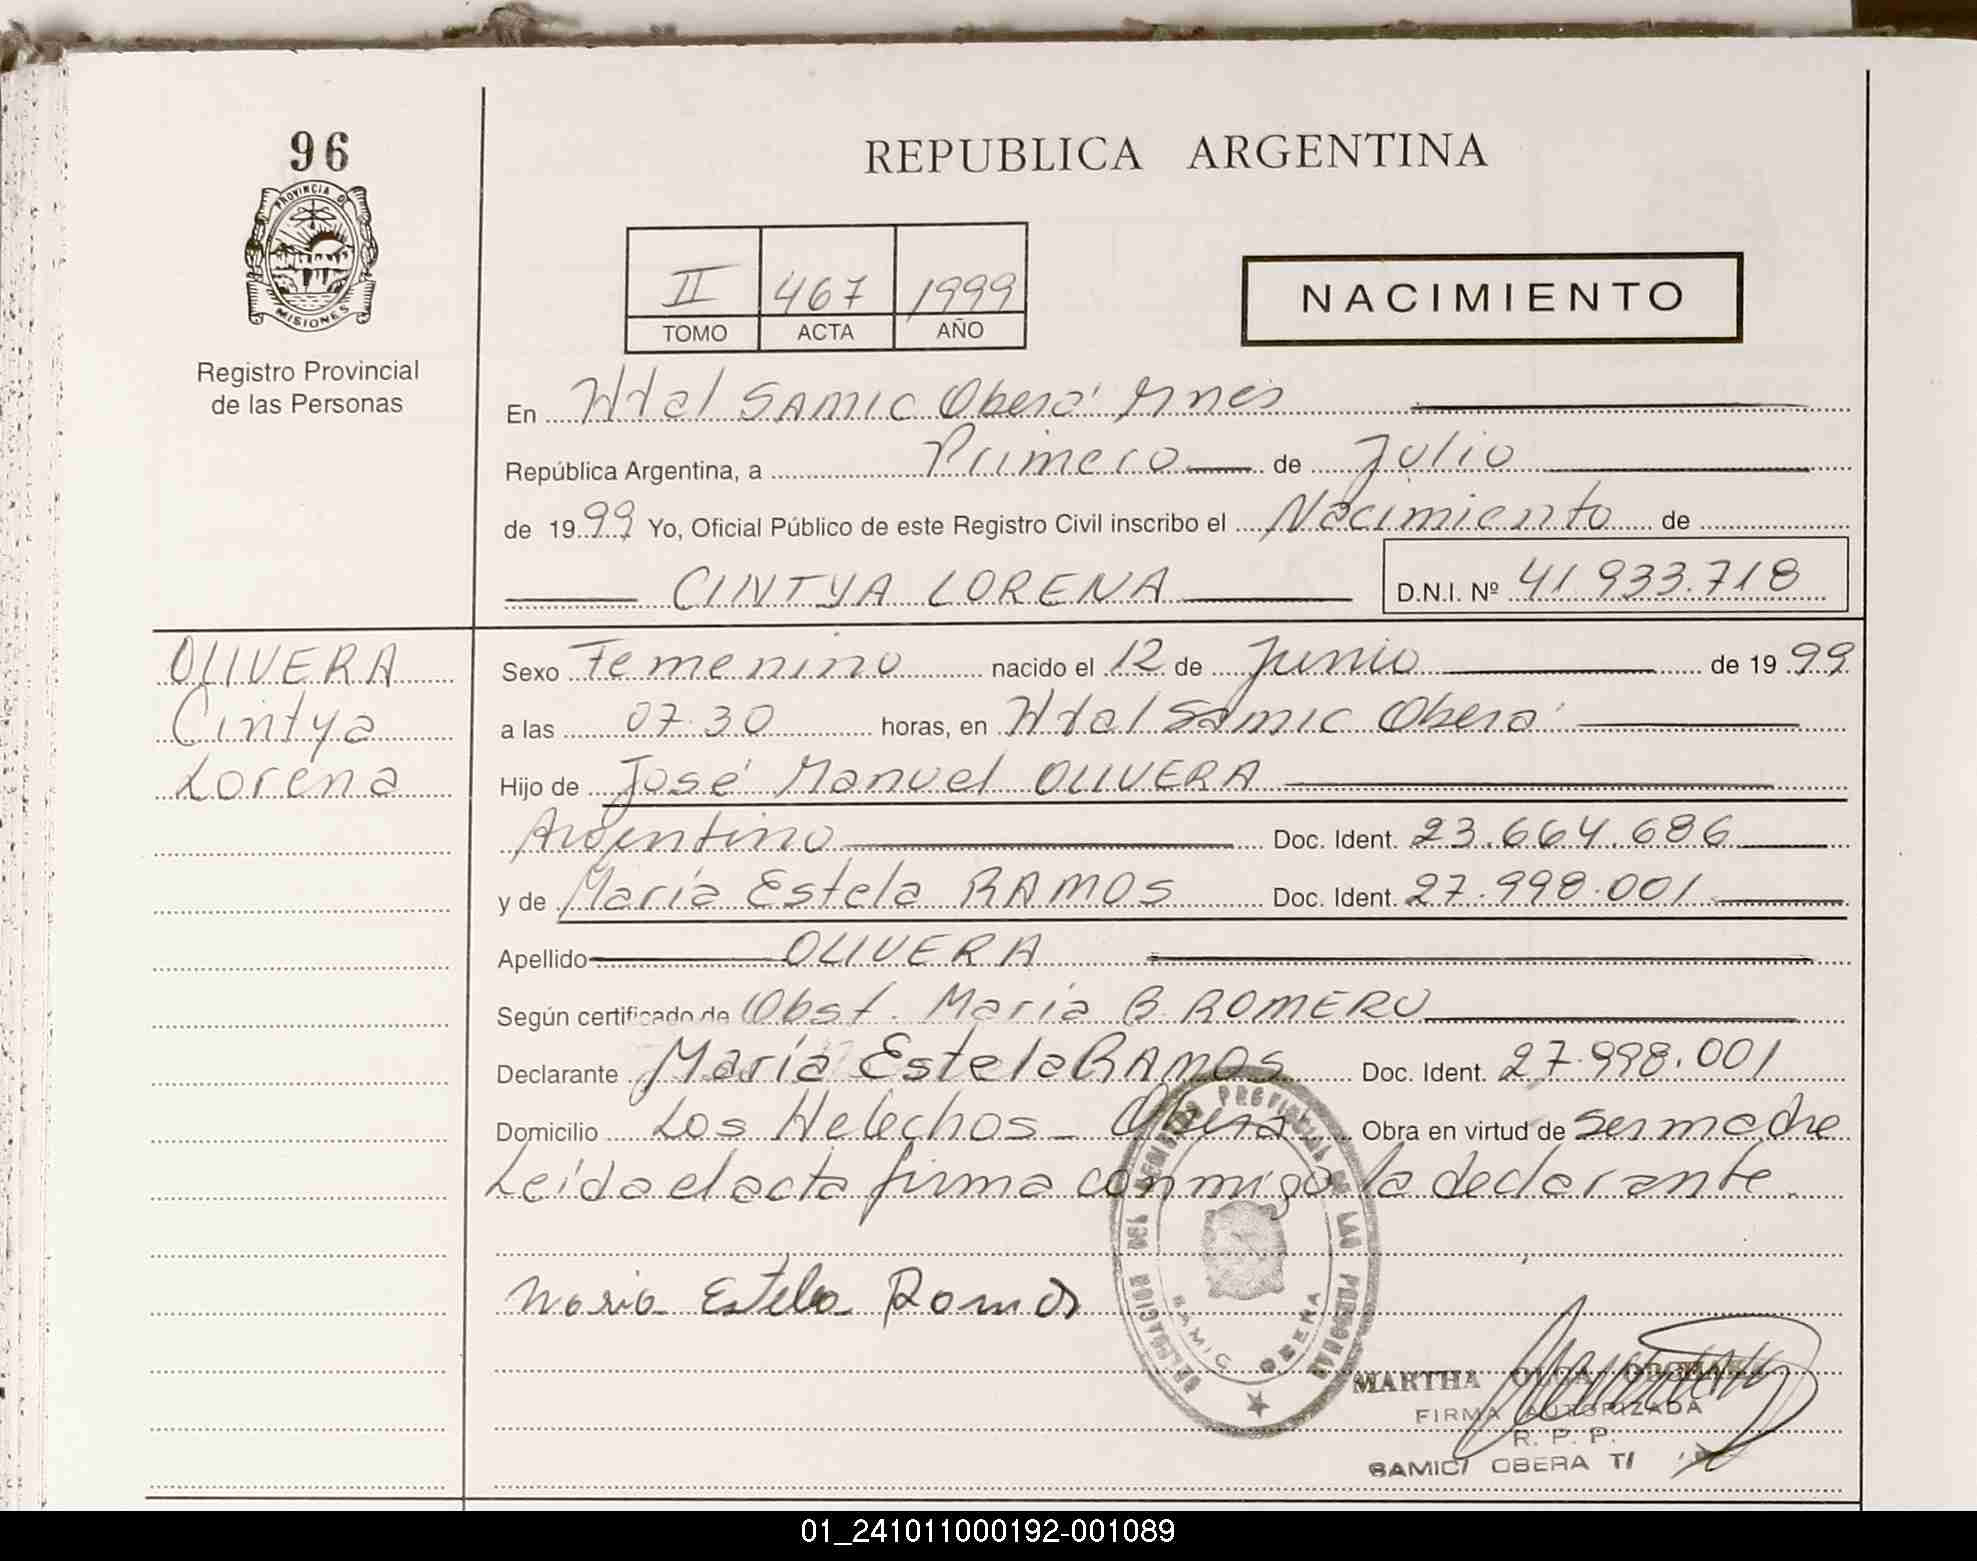 96
PROVINCIA D
MISIONES
Registro Provincial
de las Personas
REPUBLICA ARGENTINA
II 467 1999
TOMO ACTA AÑO
NACIMIENTO
En Htal SAMIC Oberá Mnes
República Argentina, a Primero de Julio
de 1999 Yo, Oficial Público de este Registro Civil inscribo el Nacimiento de
CINTYA LORENA D.N.I. Nº 41 933.718
OLIVERA
Cintya
Lorena
Sexo Femenino nacido el 12 de Junio de 1999
a las 07.30 horas, en Htal Samic Oberá
Hijo de José Manuel OLIVERA
Argentino Doc. Ident. 23.664.686
y de María Estela RAMOS Doc. Ident. 27.998.001
Apellido OLIVERA
Según certificado de Obst. María B. ROMERO
Declarante María Estela RAMOS Doc. Ident. 27.998.001
Domicilio Los Helechos - Oberá Obra en virtud de ser madre
Leída el acta firma conmigo la declarante.
Maria Estela Ramos
DELEGACION DEL REGISTRO PROVINCIAL DE LAS PERSONAS
SAMIC OBERA
MARTHA OLGA
FIRMA AUTORIZADA
R. P. P.
SAMIC OBERA
01_241011000192-001089